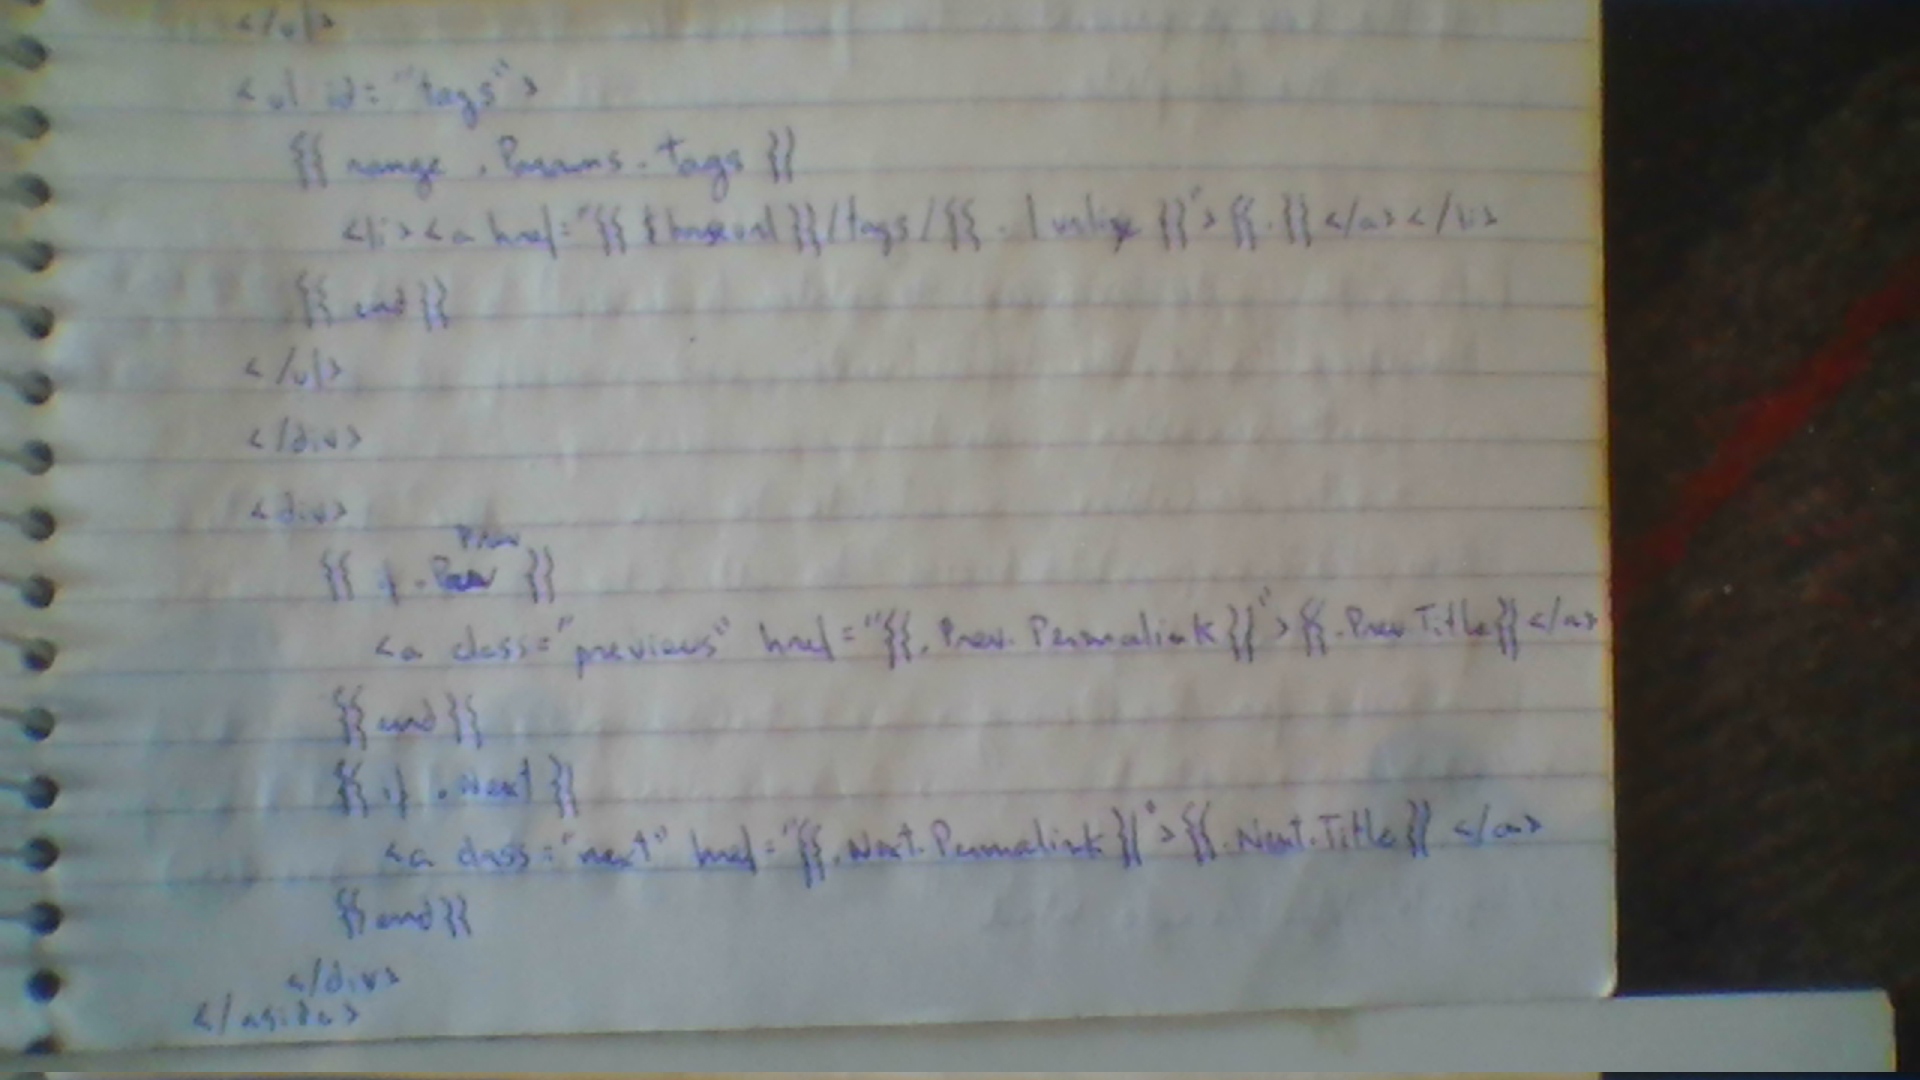 </ul>
<ul id="tags">
{{ range .Params.tags }}
<li><a href="{{ $baseurl }}/tags/{{ . | urlize }}">{{ . }}</a></li>
{{ end }}
</ul>
</div>
<div>
Prev
{{ if .Prev }}
<a class="previous" href="{{ .Prev.Permalink }}">{{ .Prev.Title }}</a>
{{ end }}
{{ if .Next }}
<a class="next" href="{{ .Next.Permalink }}">{{ .Next.Title }}</a>
{{ end }}
</div>
</aside>